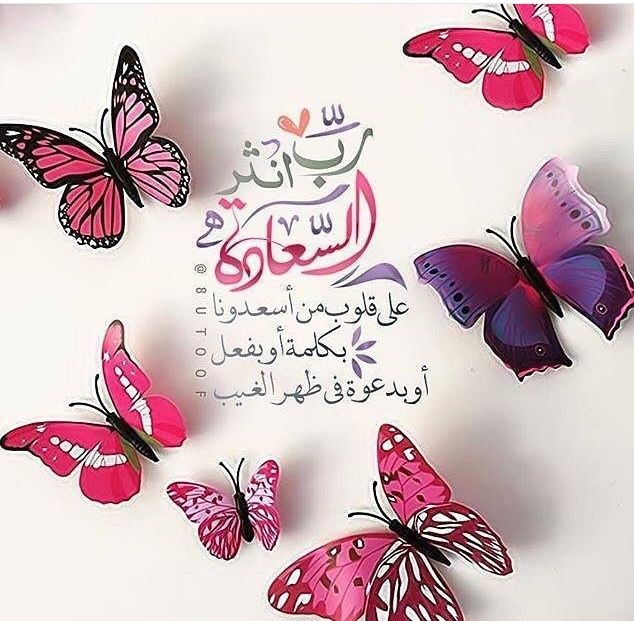 ربّ انثر
السّعادة
على قلوب من أسعدونا
بكلمة أو بفعل
أو بدعوة في ظهر الغيب
@8UTOOF